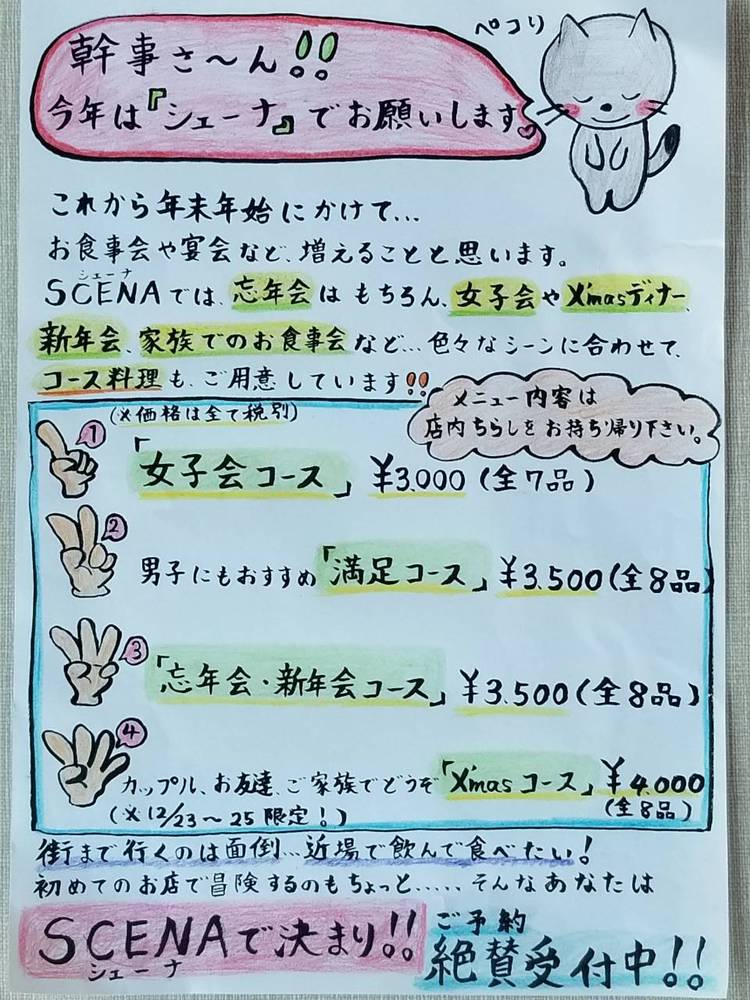 幹事さ～ん!!
ペコリ
今年は『シェーナ』でお願いします。
これから年末年始にかけて…
お食事会や宴会など、増えることと思います。
シェーナ
SCENAでは、忘年会はもちろん、女子会やX'masディナー、
新年会、家族でのお食事会など…色々なシーンに合わせて、
コース料理も、ご用意しています!!
(※価格は全て税別)
メニュー内容は
店内ちらしをお持ち帰り下さい。
1
「女子会コース」 ¥3,000 (全7品)
2
男子にもおすすめ「満足コース」 ¥3,500 (全8品)
3
「忘年会・新年会コース」 ¥3,500 (全8品)
4
カップル、お友達、ご家族でどうぞ「X'masコース」 ¥4,000
(※12/23～25限定!)
(全8品)
街まで行くのは面倒…近場で飲んで食べたい!
初めてのお店で冒険するのもちょっと.....そんなあなたは
SCENAで決まり!!
シェーナ
ご予約
絶賛受付中!!